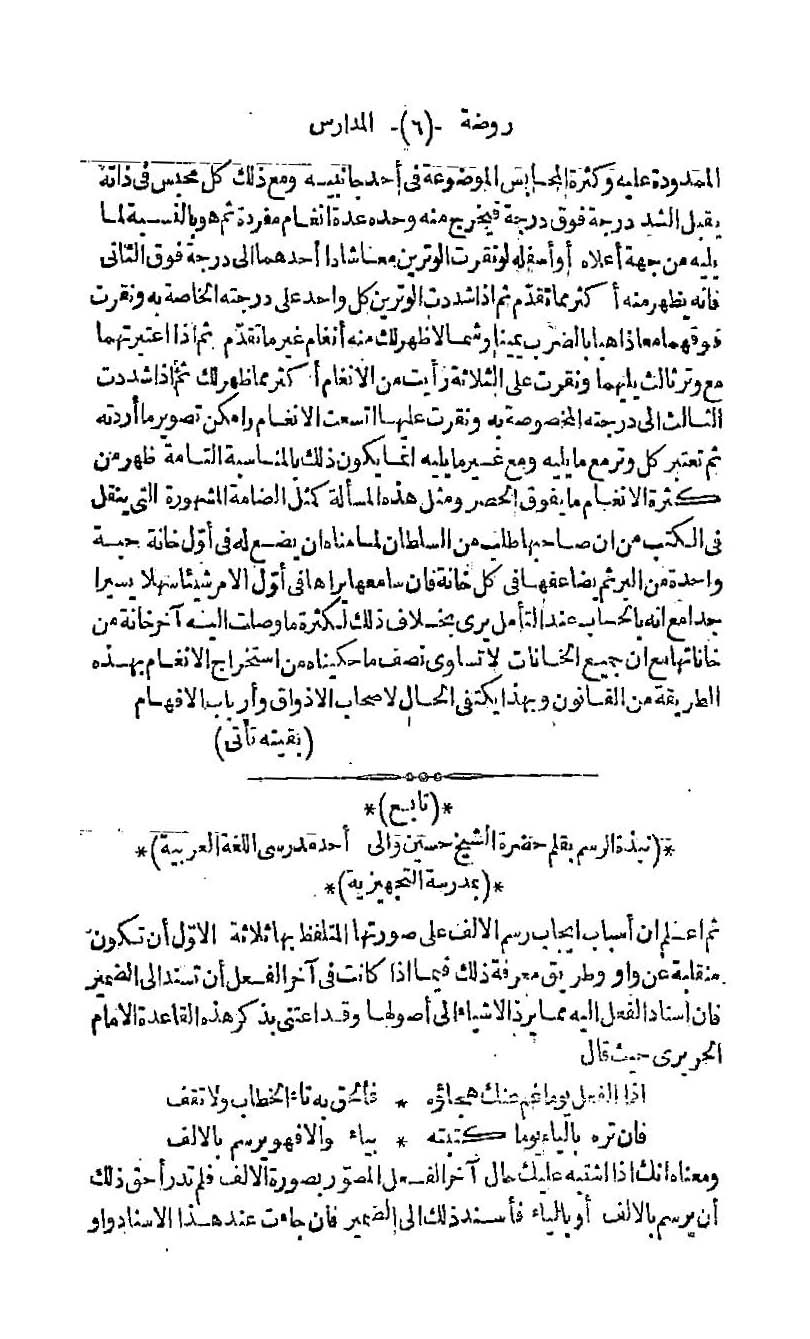 روضة -(٦)- المدارس
الممدودة عليه وكثرة المحابس الموضوعة فى أحد جانبيه ومع ذلك كل محبس فى ذاته
يقبل الشد درجة فوق درجة فيخرج منه وحده عدة انغام مفردة ثم هو بالنسبة لما
يليه من جهة أعلاه أو أسفله لو نقرت الوترين معا شادا أحدهما الى درجة فوق الثانى
فانه يظهر منه أكثر مما تقدّم ثم اذا شددت الوترين كل واحد على درجته الخاصة به ونقرت
فوقهما معا ذاهبا بالضرب يمينا وشمالا ظهر لك منه أنغام غير ما تقدّم ثم اذا اعتبرتهما
مع وتر ثالث يليهما ونقرت على الثلاثة رأيت من الانغام أكثر مما ظهر لك ثم اذا شددت
الثالث الى درجته المخصوصة به ونقرت عليها اتسعت الانغام وامكن تصوير ما أردته
ثم تعتبر كل وتر مع ما يليه ومع غير ما يليه انما يكون ذلك بالمناسبة التامة ظهر من
كثرة الانغام ما يفوق الحصر ومثل هذه المسألة كمثل الضامة المشهورة التى ينقل
فى الكتب من ان صاحبها طلب من السلطان لما مناه ان يضع له فى أوّل خانة حبة
واحدة من البر ثم يضاعفها فى كل خانة فان سامعها يراها فى أوّل الامر شيئا سهلا يسيرا
جدا مع انه بالحساب عند التأمل يرى بخلاف ذلك لكثرة ما وصلت اليه آخر خانة من
خاناتها مع ان جميع الخانات لا تساوى نصف ما حكيناه من استخراج الانغام بهذه
الطريقة من القانون وبهذا يكتفى الحال لاصحاب الاذواق وأرباب الافهام
(بقيته تأتى)
*(تابع)*
*(نبذة الرسم بقلم حضرة الشيخ حسين والى أحد مدرسى اللغة العربية)*
*(بمدرسة التجهيزية)*
ثم اعلم ان أسباب ايجاب رسم الالف على صورتها المتلفظ بها ثلاثة الاوّل أن تكون
منقلبة عن واو وطريق معرفة ذلك فيما اذا كانت فى آخر الفعل أن تسند الى الضمير
فان اسناد الفعل اليه مما يرد الاشياء الى أصولها وقد اعتنى بذكر هذه القاعدة الامام
الحريرى حيث قال
اذا الفعل يوما غم عنك هجاؤه * فألحق به تاء الخطاب ولا تقف
فان تره بالياء يوما كتبته * بياء والا فهو يرسم بالالف
ومعناه انك اذا اشتبه عليك حال آخر الفعل المصوّر بصورة الالف فلم تدر أحق ذلك
أن يرسم بالالف أو بالياء فأسند ذلك الى الضمير فان جاءت عند هذا الاسناد واو